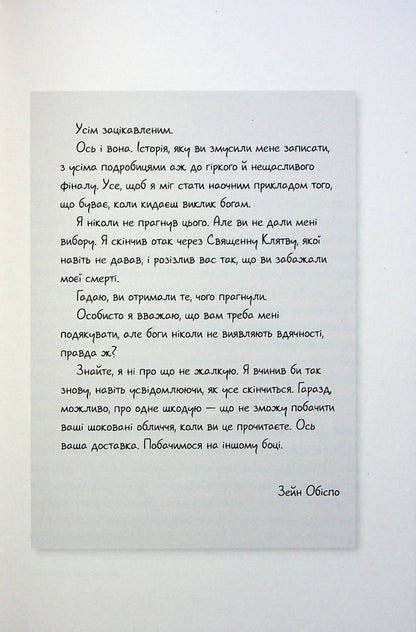 Усім зацікавленим.
Ось і вона. Історія, яку ви змусили мене записати,
з усіма подробицями аж до гіркого й нещасливого
фіналу. Усе, щоб я міг стати наочним прикладом того,
що буває, коли кидаєш виклик богам.
Я ніколи не прагнув цього. Але ви не дали мені
вибору. Я скінчив отак через Священну Клятву, якої
навіть не давав, і розізлив вас так, що ви забажали
моєї смерті.
Гадаю, ви отримали те, чого прагнули.
Особисто я вважаю, що вам треба мені
подякувати, але боги ніколи не виявляють вдячності,
правда ж?
Знайте, я ні про що не жалкую. Я вчинив би так
знову, навіть усвідомлюючи, як усе скінчиться. Гаразд,
можливо, про одне шкодую — що не зможу побачити
ваші шоковані обличчя, коли ви це прочитаєте. Ось
ваша доставка. Побачимося на іншому боці.
Зейн Обіспо